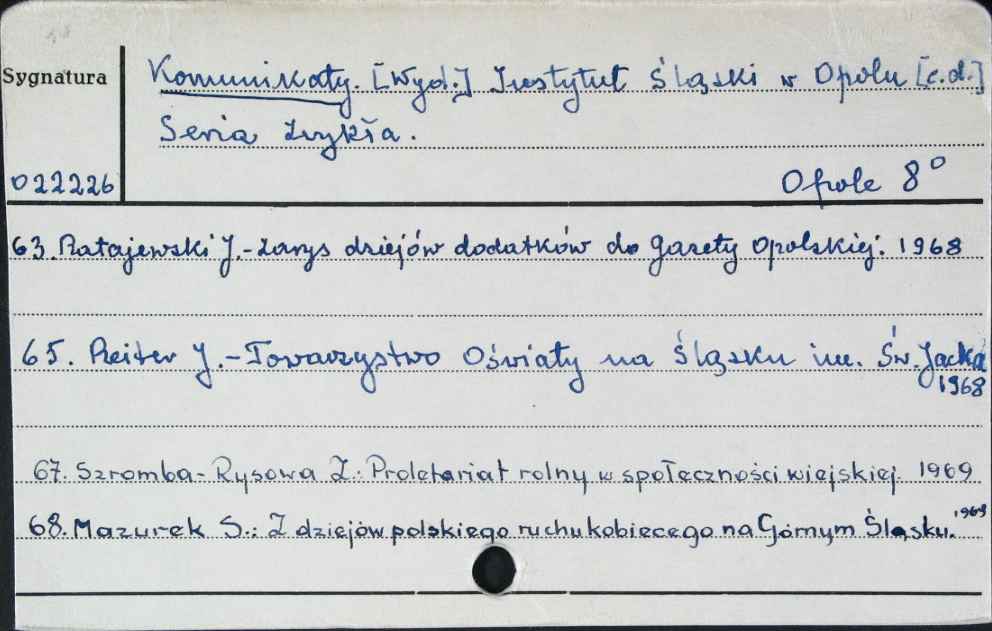 Komunikaty. [Wyd.] Instytut Śląski w Opolu [c.d.]
Sygnatura
Seria zwykła.
022226
Opole 8°
63. Ratajewski J.-Zarys dziejów dodatków do gazety opolskiej. 1968
65. Reiter J.-Towarzystwo Oświaty na Śląsku im. Św. Jacka
1968
67. Szromba-Rysowa Z.: Proletariat rolny w społeczności wiejskiej. 1969
68. Mazurek S.: Z dziejów polskiego ruchu kobiecego na Górnym Śląsku. 1969